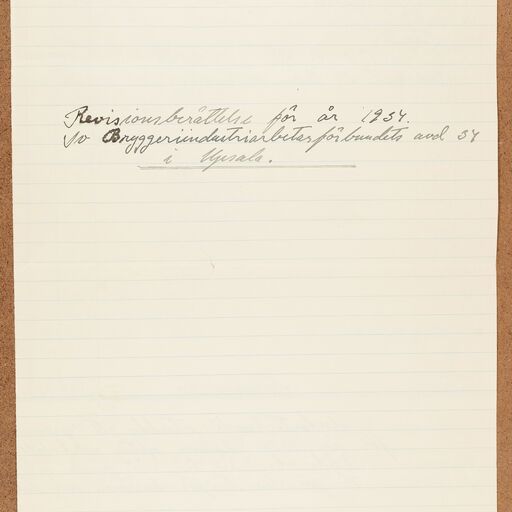 Revisionsberättelse för år 1934.
Sv Bryggeriindustriarbetareförbundets avd 34
i Upsala.